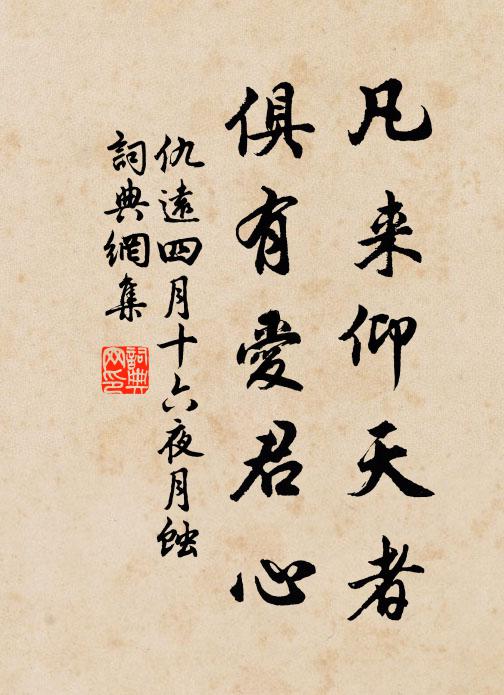 凡来仰天者
俱有愛君心
仇遠四月十六夜月蝕
詞典網集
詞典网印